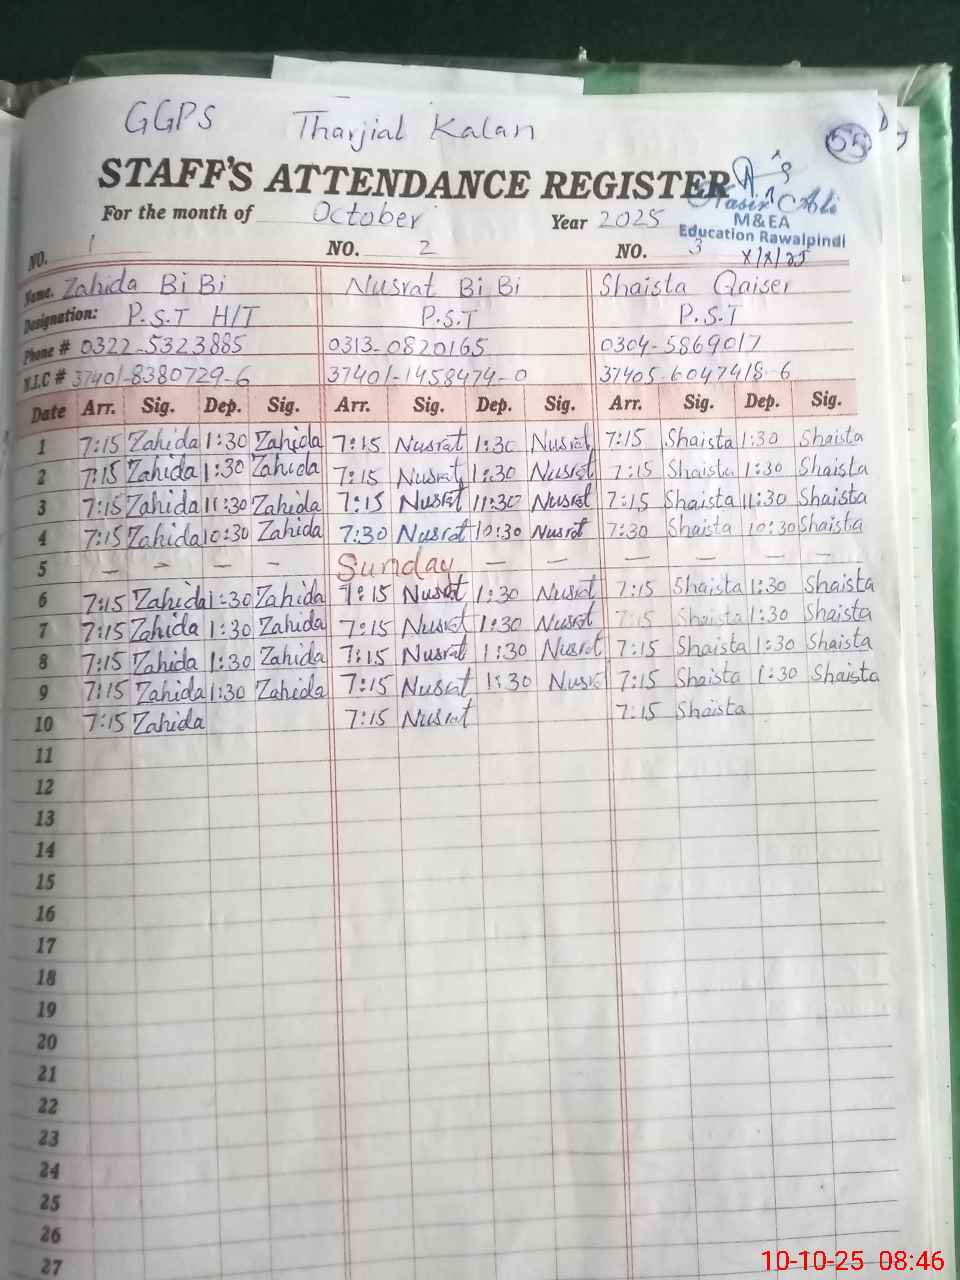 GGPS Tharjial Kalan 55
STAFF'S ATTENDANCE REGISTER
For the month of October Year 2025
Nasir Ali
M&EA
Education Rawalpindi
NO. 1 NO. 2 NO. 3
Name. Zahida Bi Bi Nusrat Bi Bi Shaista Qaiser
Designation: P.S.T H/T P.S.T P.S.T
Phone # 0322-5323885 0313-0820165 0304-5869017
N.I.C # 37401-8380729-6 37401-1458474-0 37405-6047418-6
Date Arr. Sig. Dep. Sig. Arr. Sig. Dep. Sig. Arr. Sig. Dep. Sig.
1 7:15 Zahida 1:30 Zahida 7:15 Nusrat 1:30 Nusrat 7:15 Shaista 1:30 Shaista
2 7:15 Zahida 1:30 Zahida 7:15 Nusrat 1:30 Nusrat 7:15 Shaista 1:30 Shaista
3 7:15 Zahida 11:30 Zahida 7:15 Nusrat 11:30 Nusrat 7:15 Shaista 11:30 Shaista
4 7:15 Zahida 10:30 Zahida 7:30 Nusrat 10:30 Nusrat 7:30 Shaista 10:30 Shaista
5 — — — — Sunday — — — — — —
6 7:15 Zahida 1:30 Zahida 7:15 Nusrat 1:30 Nusrat 7:15 Shaista 1:30 Shaista
7 7:15 Zahida 1:30 Zahida 7:15 Nusrat 1:30 Nusrat 7:15 Shaista 1:30 Shaista
8 7:15 Zahida 1:30 Zahida 7:15 Nusrat 1:30 Nusrat 7:15 Shaista 1:30 Shaista
9 7:15 Zahida 1:30 Zahida 7:15 Nusrat 1:30 Nusrat 7:15 Shaista 1:30 Shaista
10 7:15 Zahida 7:15 Nusrat 7:15 Shaista
11
12
13
14
15
16
17
18
19
20
21
22
23
24
25
26
27
10-10-25 08:46